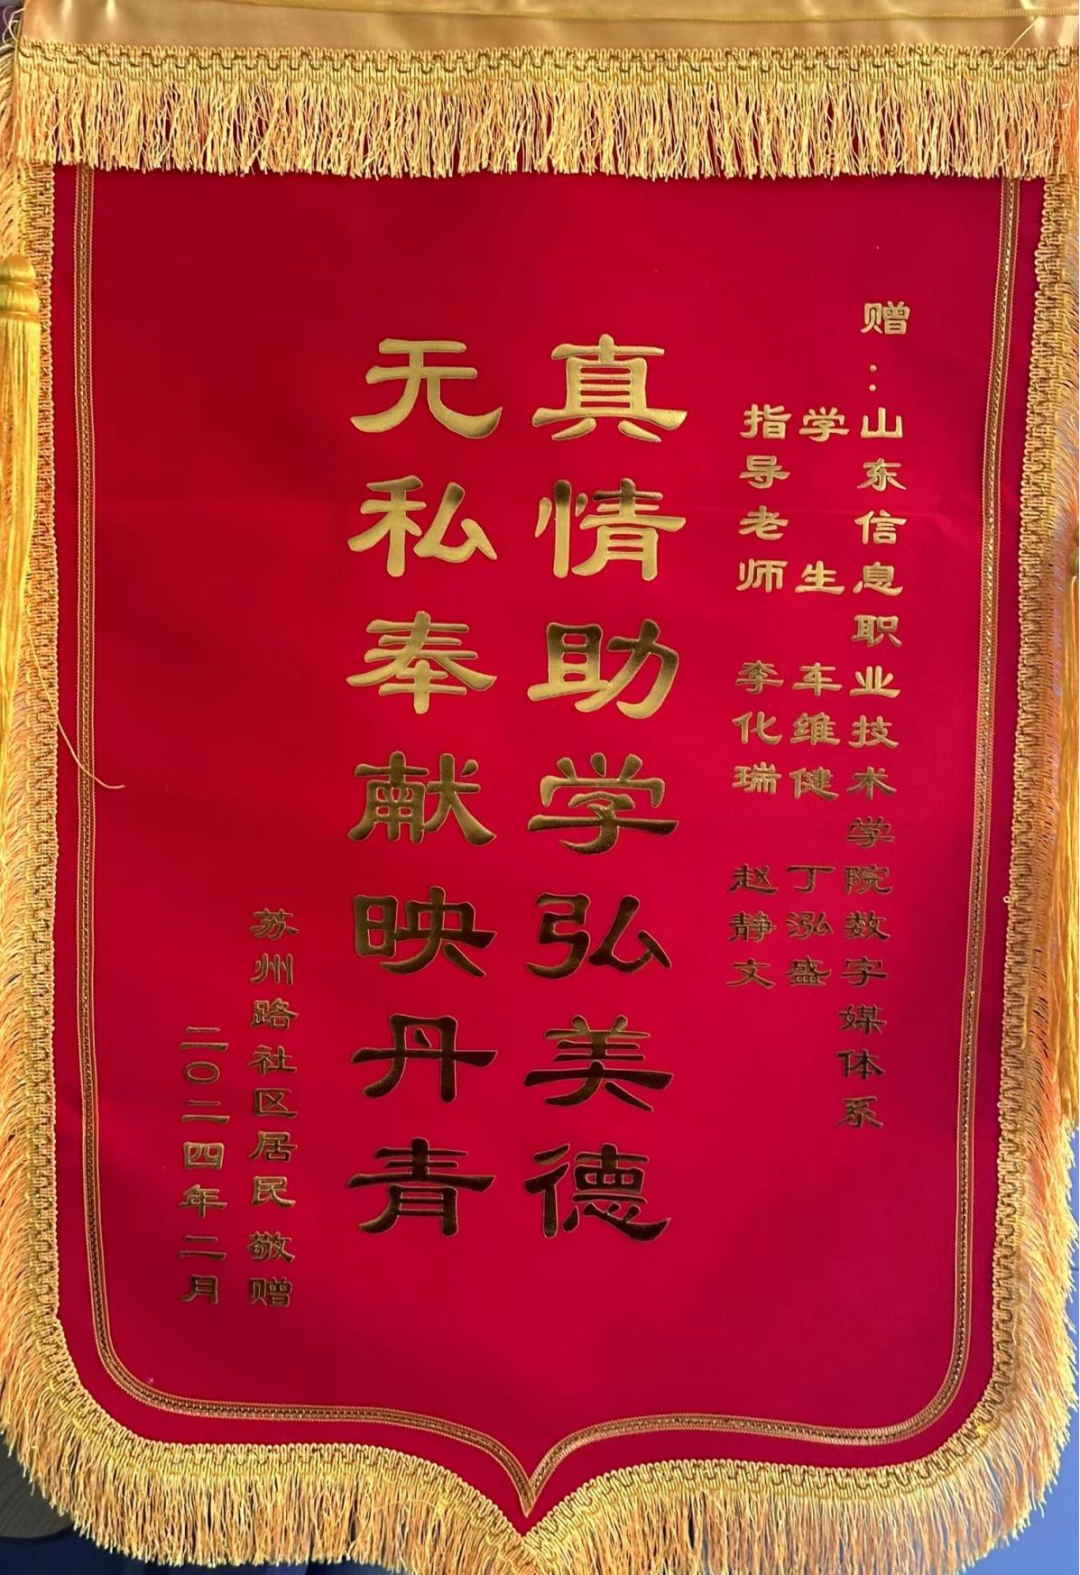 赠：山东信息职业技术学院数字媒体系
学生 车维健 丁泓盛
指导老师 李化瑞 赵静文
真情助学弘美德
无私奉献映丹青
苏州路社区居民 敬赠
二〇二四年二月